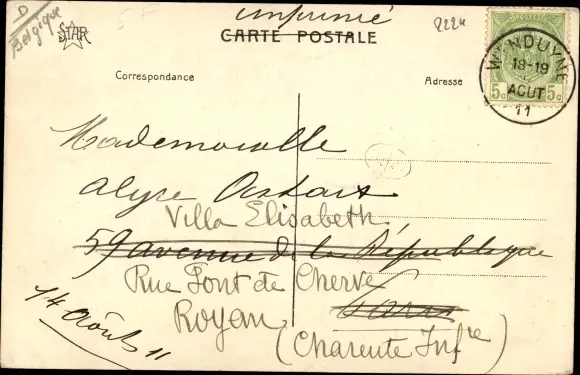 D
Belgique
STAR
imprimé
CARTE POSTALE
R224
WENDUYNE
18-19
AOUT
11
5c 5c
Correspondance
Adresse
Mademoiselle
Alyse
Villa Elisabeth
59 avenue de la République
Rue Font de Cherve
Paris
Royan
(Charente Infre)
14 Août 11